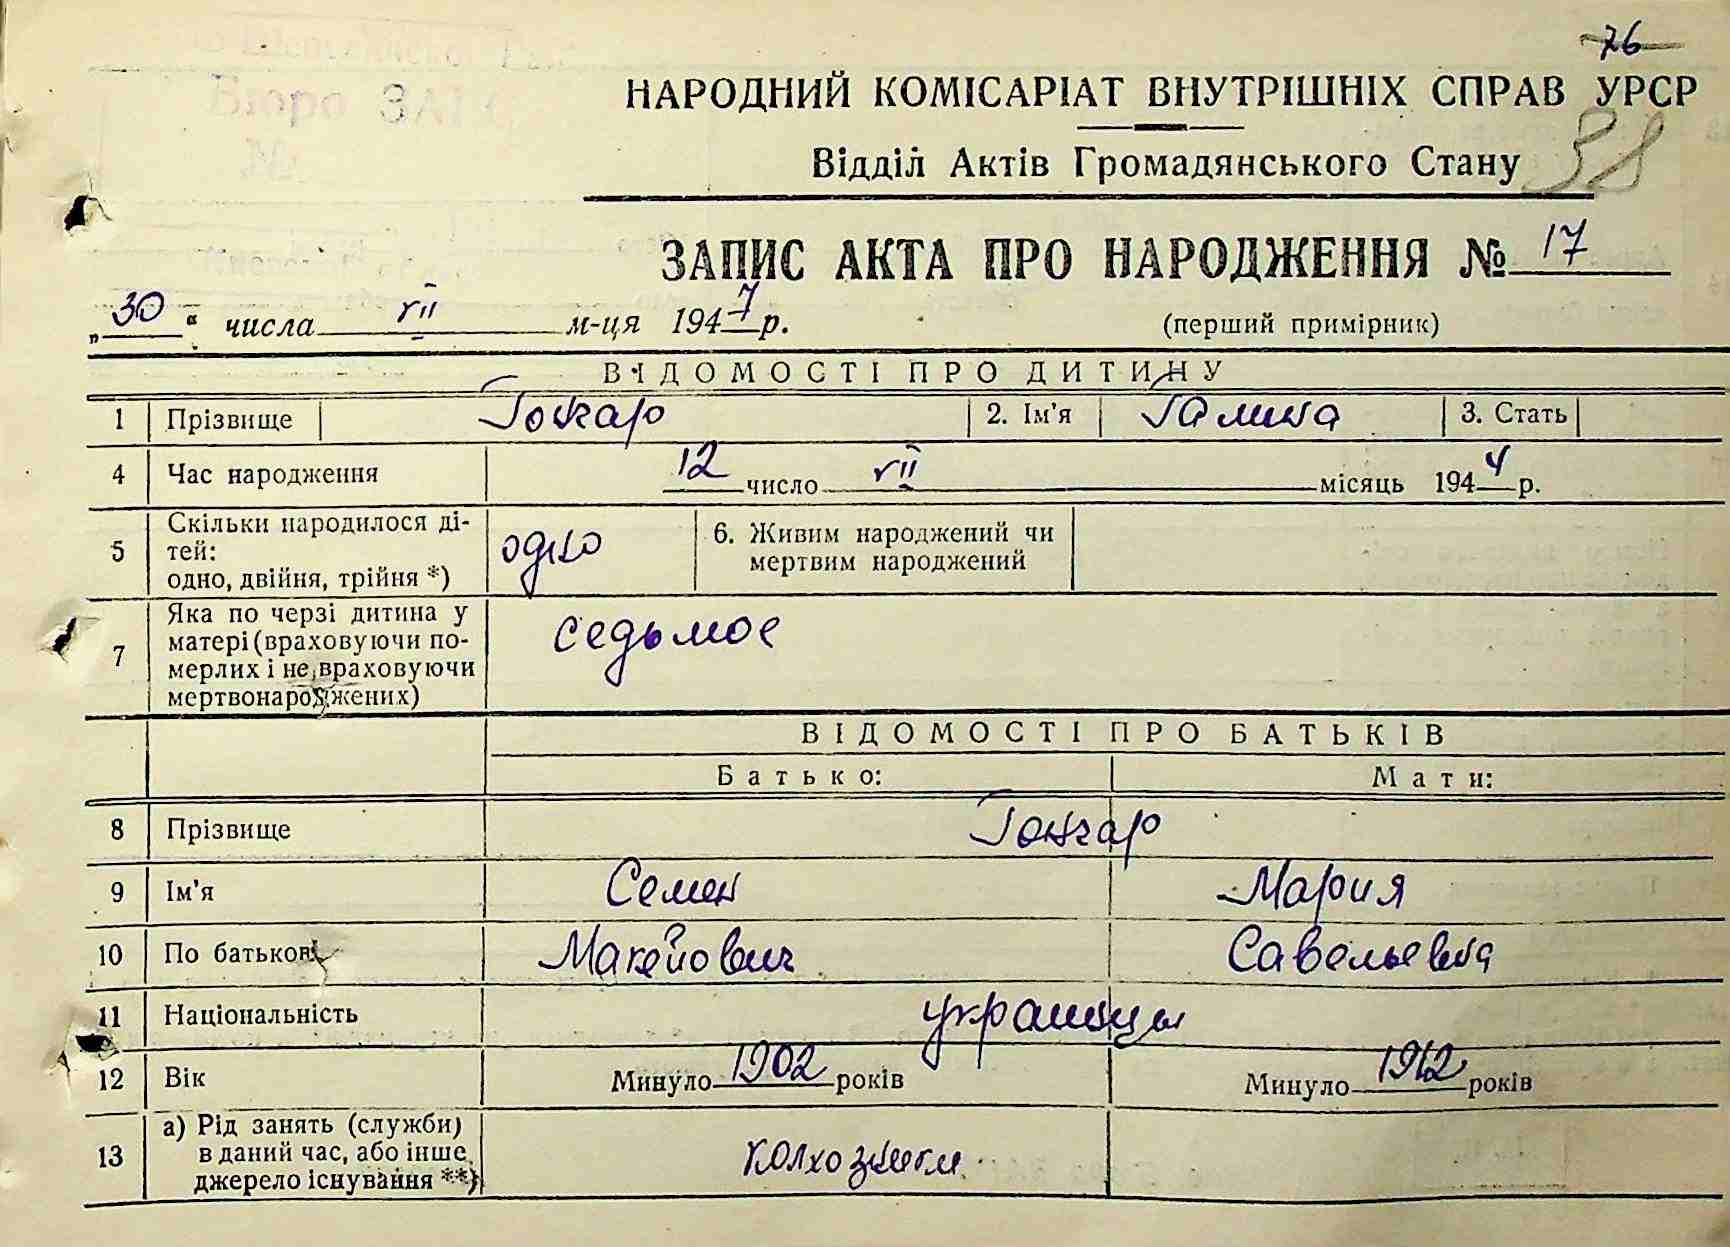 76
НАРОДНИЙ КОМІСАРІАТ ВНУТРІШНІХ СПРАВ УРСР
Відділ Актів Громадянського Стану 38
Бюро ЗАГС
ЗАПИС АКТА ПРО НАРОДЖЕННЯ № 17
„30“ числа VII м-ця 1947 р. (перший примірник)
ВІДОМОСТІ ПРО ДИТИНУ
1 Прізвище Гончар 2. Ім'я Галина 3. Стать
4 Час народження 12 число VII місяць 1944 р.
5 Скільки народилося ді-
тей:
одно, двійня, трійня *) одно 6. Живим народжений чи
мертвим народжений
7 Яка по черзі дитина у
матері (враховуючи по-
мерлих і не враховуючи
мертвонароджених) седьмое
ВІДОМОСТІ ПРО БАТЬКІВ
Батько: Мати:
8 Прізвище Гончар
9 Ім'я Семен Мария
10 По батькові Макейович Савельевна
11 Національність украинцы
12 Вік Минуло 1902 років Минуло 1912 років
13 а) Рід занять (служби)
в даний час, або інше
джерело існування **) колхозники